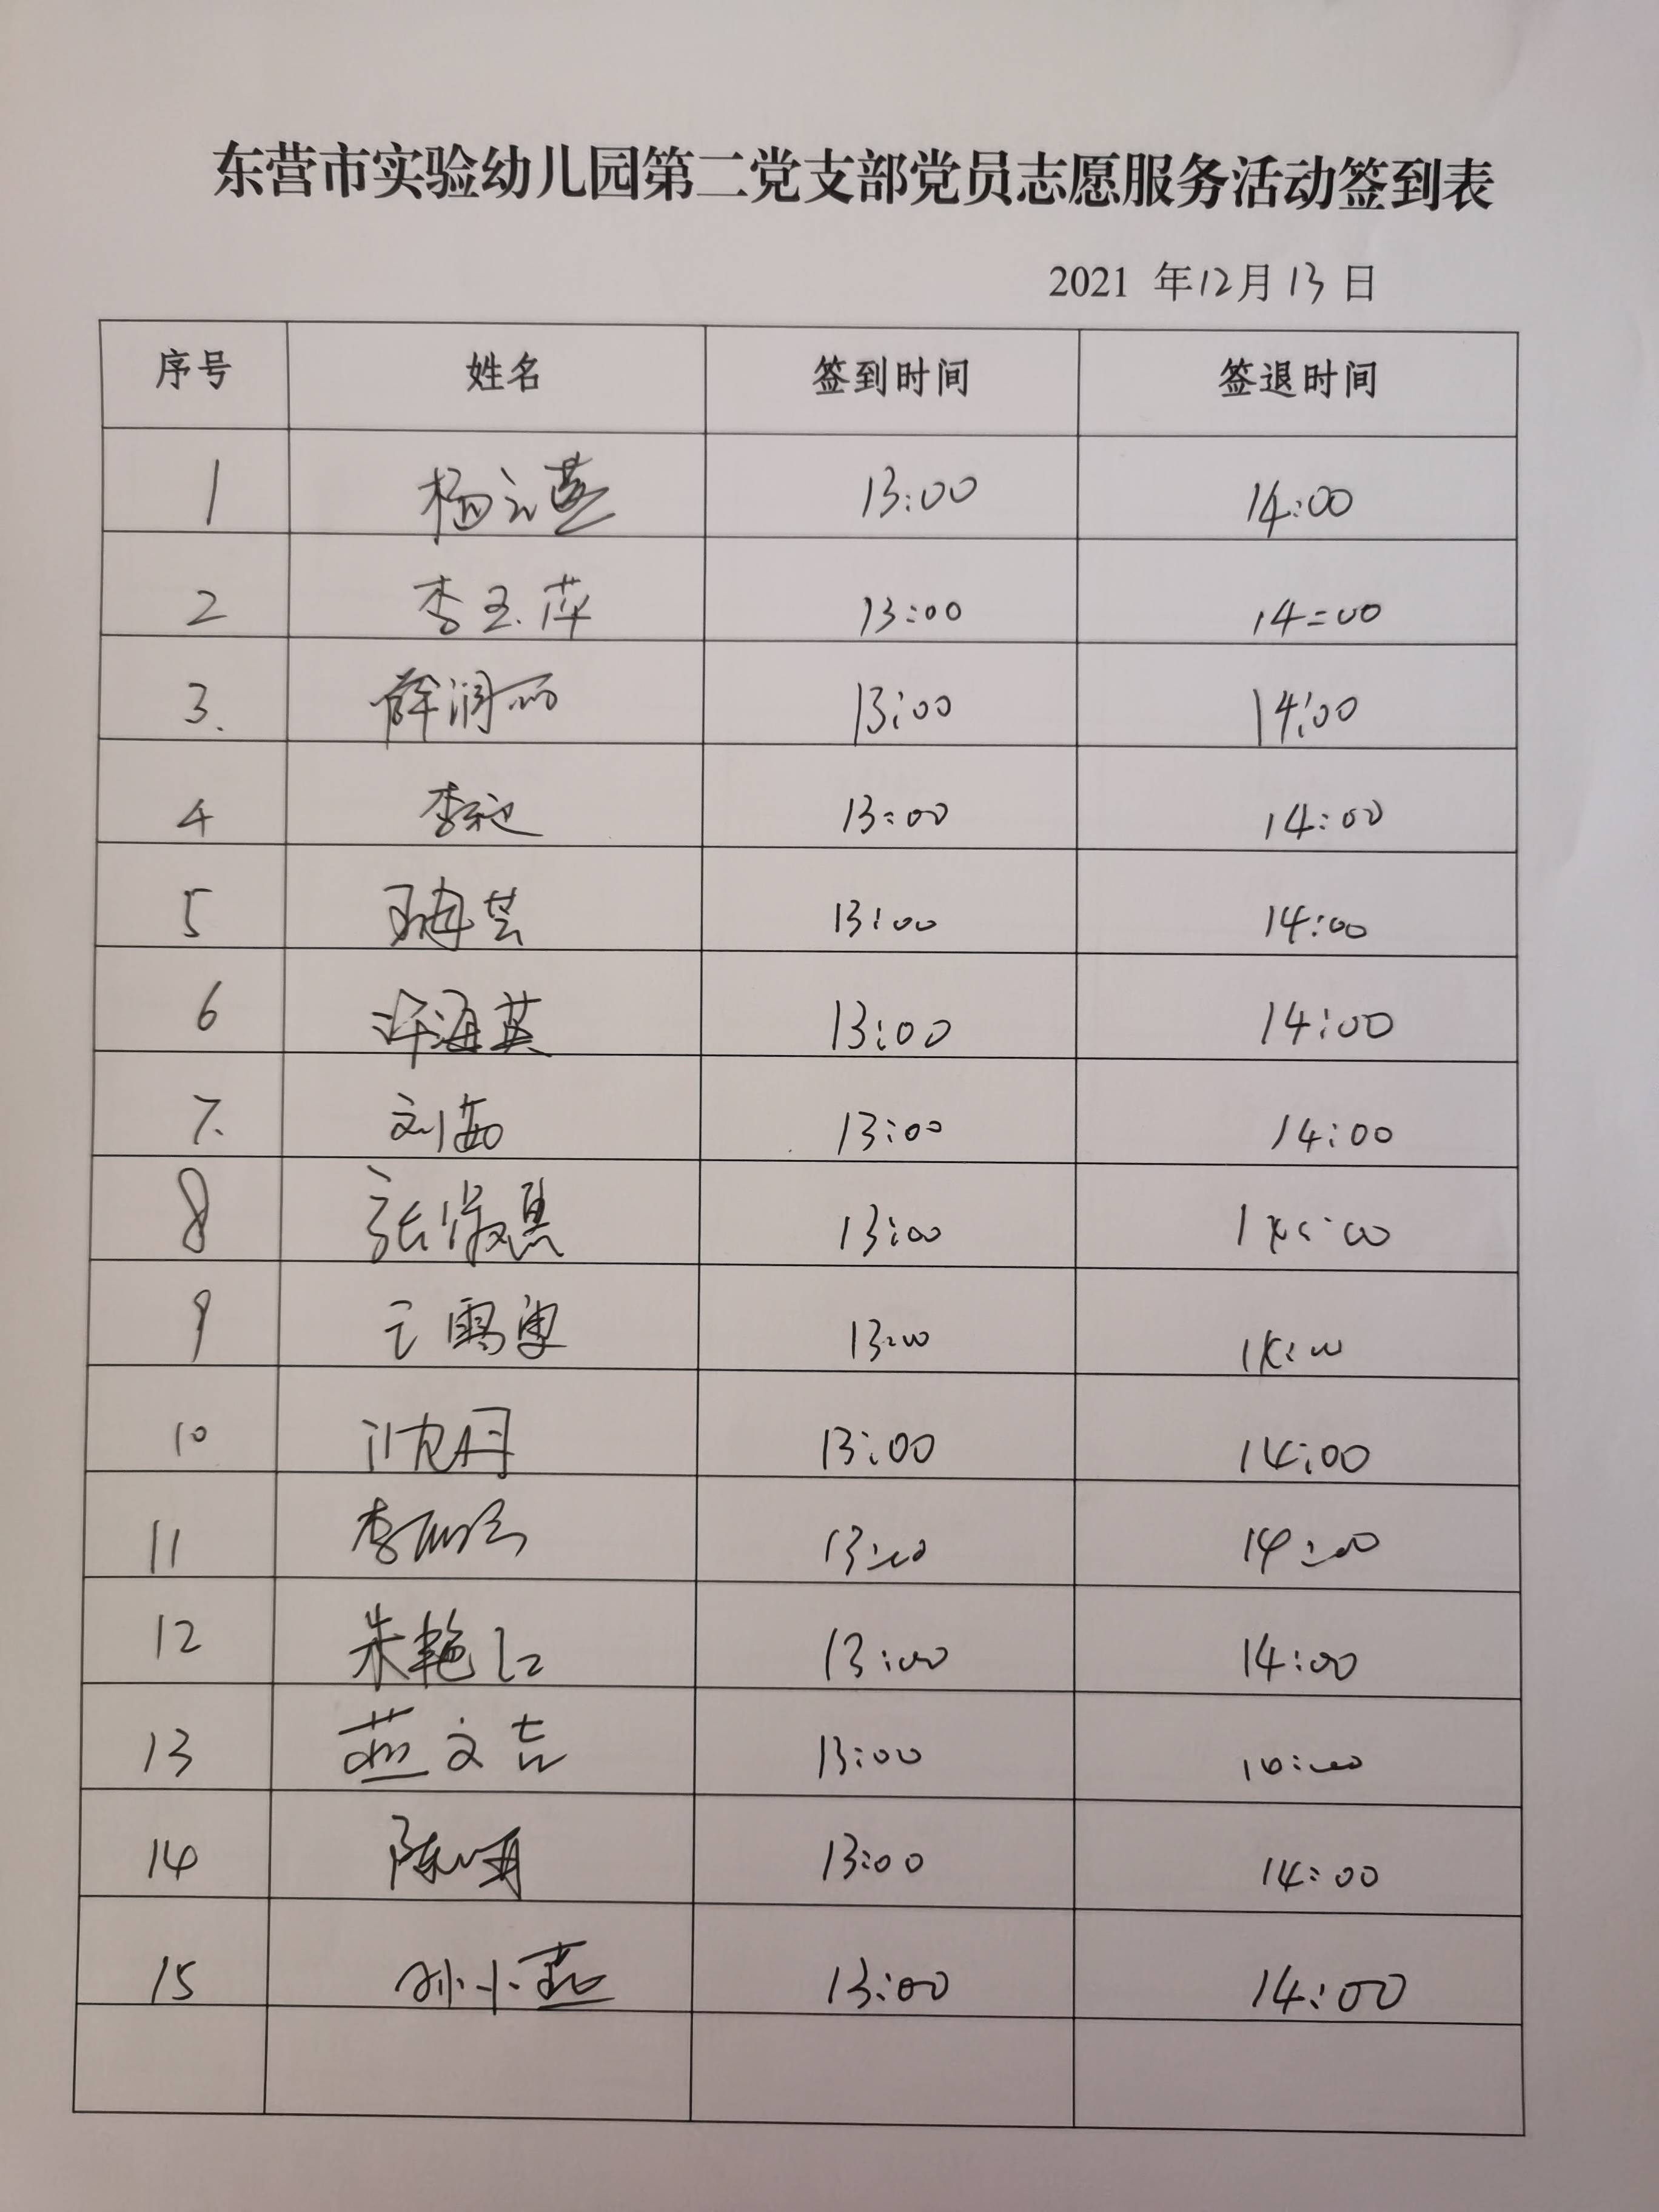 东营市实验幼儿园第二党支部党员志愿服务活动签到表
2021 年12月13日
序号 姓名 签到时间 签退时间
1 杨立燕 13:00 14:00
2 李玉萍 13:00 14:00
3. 薛润丽 13:00 14:00
4 李 13:00 14:00
5 王海芸 13:00 14:00
6 许海英 13:00 14:00
7. 刘茜 13:00 14:00
8 张淑惠 13:00 14:00
9 13:00 14:00
10 沈丹 13:00 14:00
11 李 13:00 14:00
12 朱艳红 13:00 14:00
13 燕文吉 13:00
14 陈 13:00 14:00
15 孙小燕 13:00 14:00